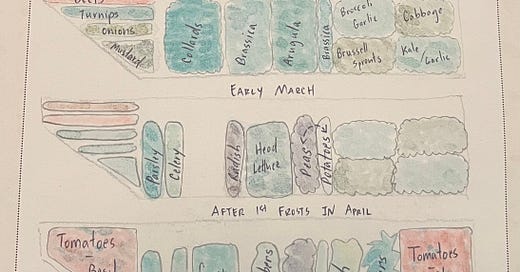 Beets
Turnips
Onions
Mustard
Collards
Brassica
Arugula
Brassica
Broccoli
Garlic
Cabbage
Brussell
Sprouts
Kale/
Garlic
EARLY MARCH
Parsley
Celery
Radish
Head
Lettuce
Peas
Potatoes
AFTER 1st FROSTS IN APRIL
Tomatoes
-
Basil
Tomatoes